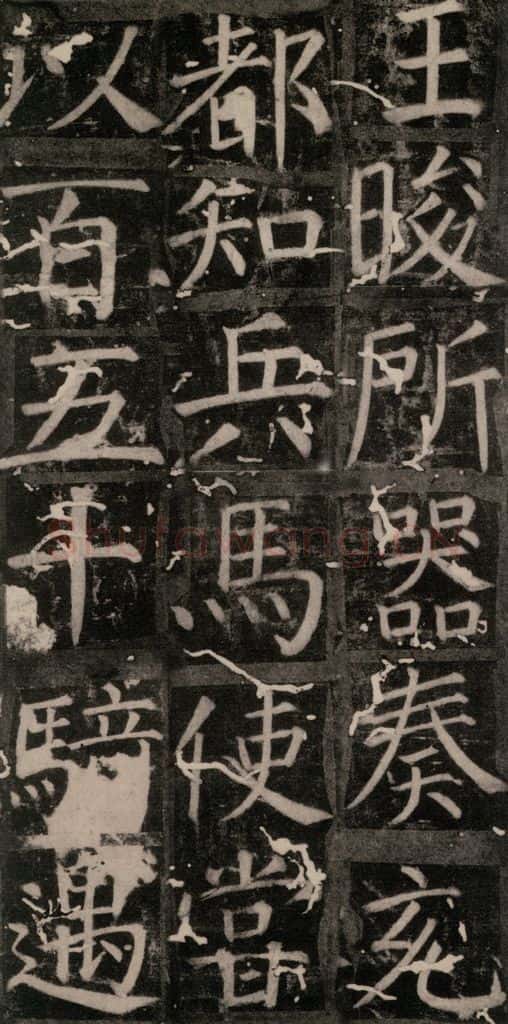 王晙所器奏充
都知兵馬使嘗
以百五十騎遇
Shufawang.CN